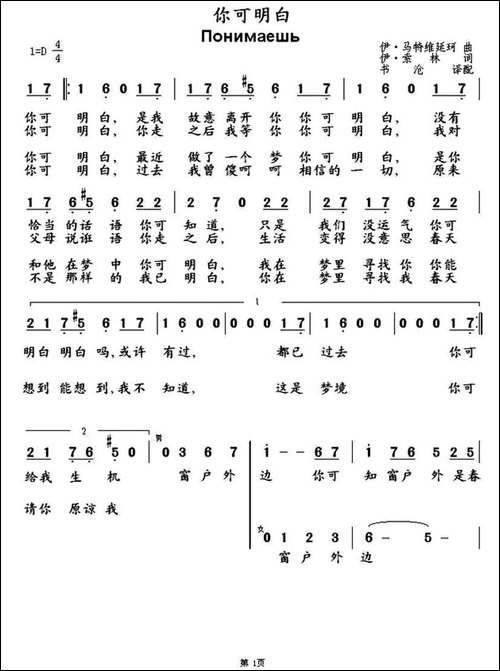 你可明白
Понимаешь
1=D 4/4
伊·马特维廷珂 曲
伊·索 林 词
书 沧 译配
1 7 1 6 0 1 7 1 7 6 #5 6 1 7 1 6 0 1 7
你可 明 白, 是我 故意 离开 你 你可 明 白, 没有
你可 明 白, 你走 之后 我等 你 你可 明 白, 我对
你可 明 白, 最近 做了 一个 梦 你可 明 白, 是你
你可 明 白, 过去 我曾 傻呵 呵 相信的 一 切, 原来
1 7 6 #5 6 2 1 2 7 0 2 1 2 1 7 1 6 2 1
恰当 的话 语 你可 知 道, 只是 我们 没运 气 你可
父母 说诳 语 你走 之 后, 生活 变得 没意 思 春天
和他 在梦 中 你可 明 白, 我在 梦里 寻找 你 你能
不是 那样 的 我已 明 白, 你在 梦里 寻找 我 春天
1
2 1 7 #5 6 1 7 1 6 0 0 0 0 0 1 7 1 6 0 0 0 0 0 1 7
明白 明白 吗,或许 有过, 都已 过去 你可
想到 能想 到,我不 知道, 这是 梦境 你可
2
2 1 7 6 #5 0 男 0 3 6 7 i - - 6 7 i 7 6 7 2 5
给我 生 机 窗 户 外 边 你可 知 窗户 外 是春
请你 原谅 我
女 0 1 2 3 6 - 5 -
窗 户 外 边
第 1页